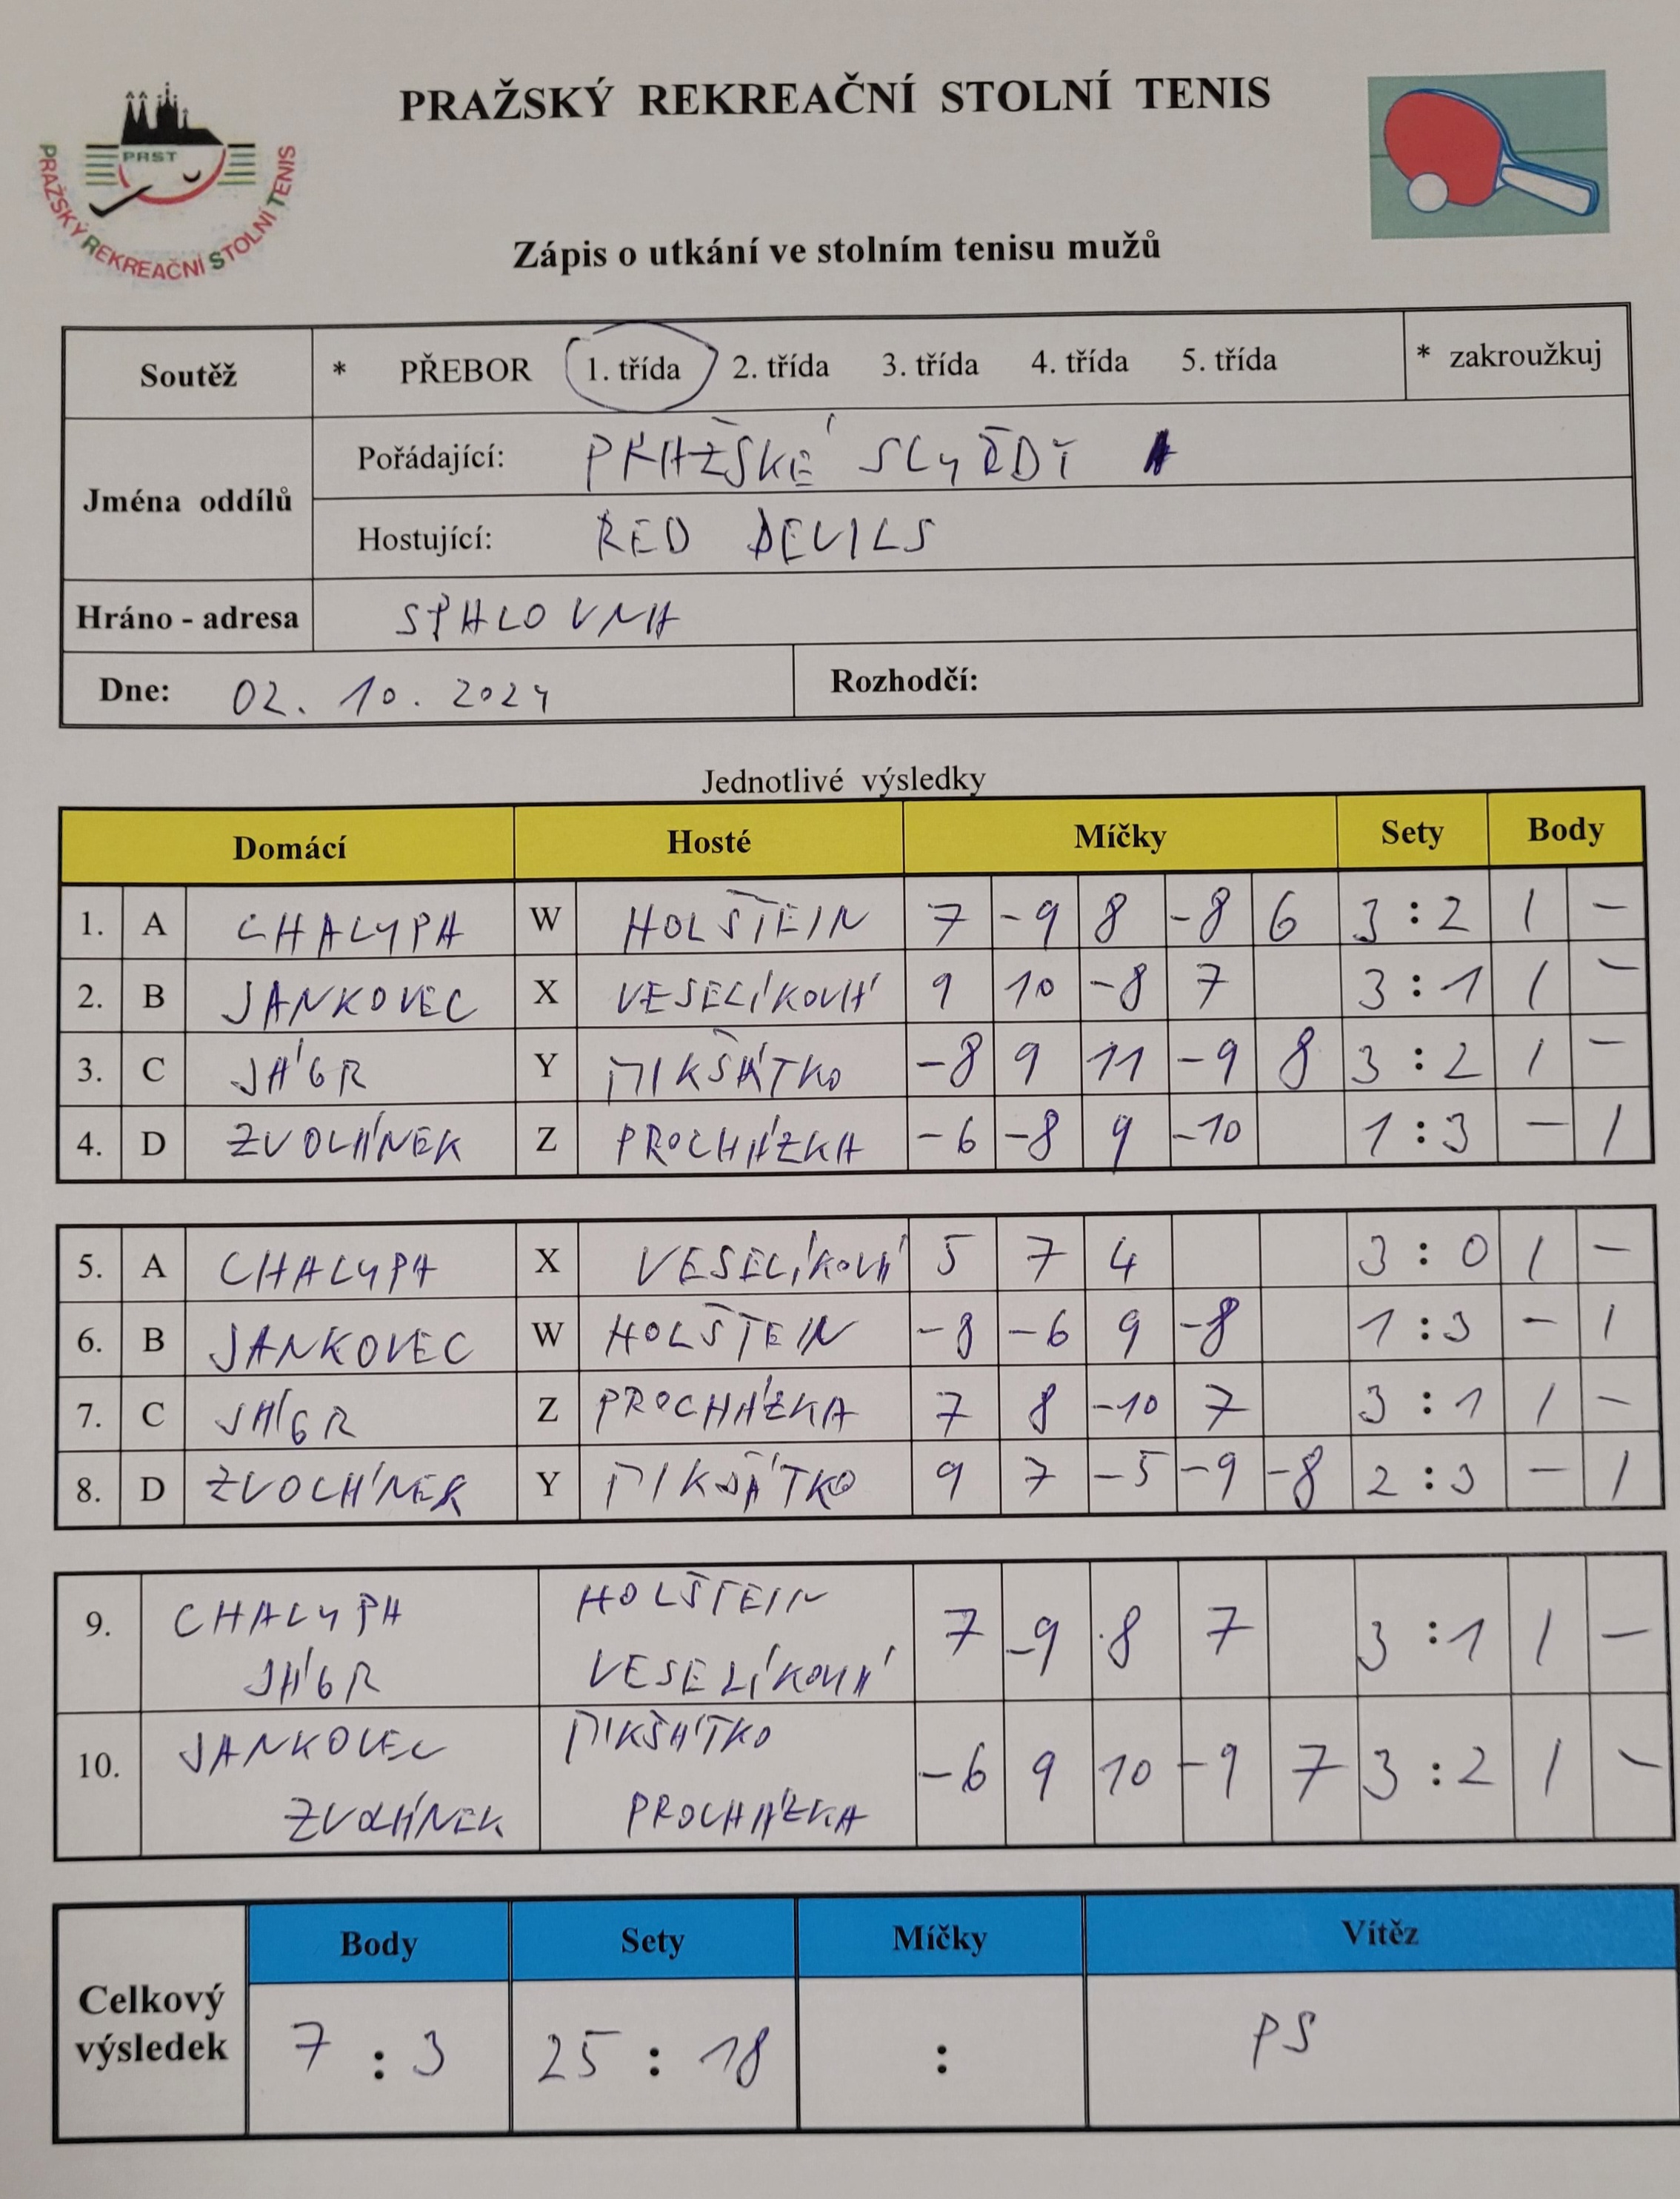 PRAŽSKÝ REKREAČNÍ STOLNÍ TENIS
PRST
PRAŽSKÝ REKREAČNÍ STOLNÍ TENIS
Zápis o utkání ve stolním tenisu mužů
Soutěž * PŘEBOR 1. třída 2. třída 3. třída 4. třída 5. třída * zakroužkuj
Jména oddílů
Pořádající: PRAŽSKÉ SLYŽDĚ A
Hostující: RED DEVILS
Hráno - adresa SPALOVNA
Dne: 02. 10. 2024 Rozhodčí:
Jednotlivé výsledky
Domácí Hosté Míčky Sety Body
1. A CHALUPA W HOLŠTEIN 7 -9 8 -8 6 3 : 2 1 –
2. B JANKOVEC X VESELÍKOVÁ 9 10 -8 7 3 : 1 1 –
3. C JÁGR Y MIKŠÁTKO -8 9 11 -9 8 3 : 2 1 –
4. D ZVOLÁNEK Z PROCHÁZKA -6 -8 9 -10 1 : 3 – 1
5. A CHALUPA X VESELÍKOVÁ 5 7 4 3 : 0 1 –
6. B JANKOVEC W HOLŠTEIN -8 -6 9 -8 1 : 3 – 1
7. C JÁGR Z PROCHÁZKA 7 8 -10 7 3 : 1 1 –
8. D ZVOLÁNEK Y MIKŠÁTKO 9 7 -5 -9 -8 2 : 3 – 1
9. CHALUPA JÁGR HOLŠTEIN VESELÍKOVÁ 7 -9 8 7 3 : 1 1 –
10. JANKOVEC ZVOLÁNEK MIKŠÁTKO PROCHÁZKA -6 9 10 -9 7 3 : 2 1 –
Celkový výsledek
Body Sety Míčky Vítěz
7 : 3 25 : 18 : PS